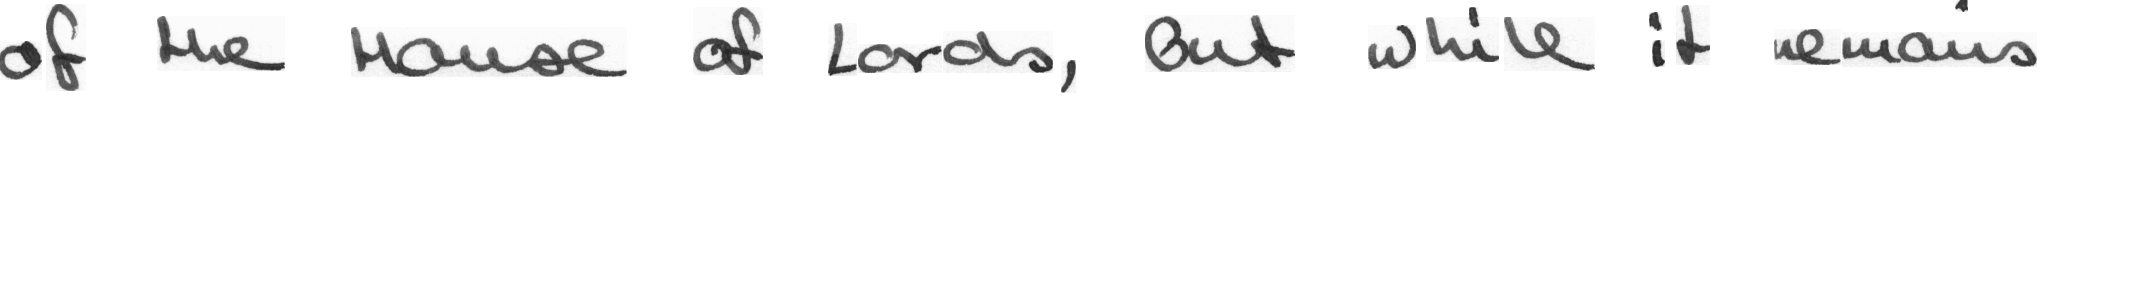 of the House of Lords, But while it remains